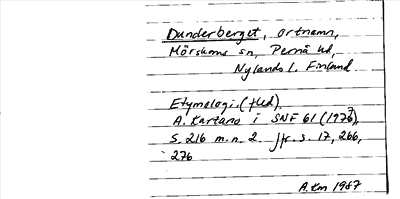 Dunderberget, ortnamn,
Mörskoms sn, Pernå hd,
Nylands l. Finland
Etymologi (fled).
A. Kartano i SNF 61 (1976),
S. 216 m. n. 2. Jfr. s. 17, 266,
276
A. Km 1987